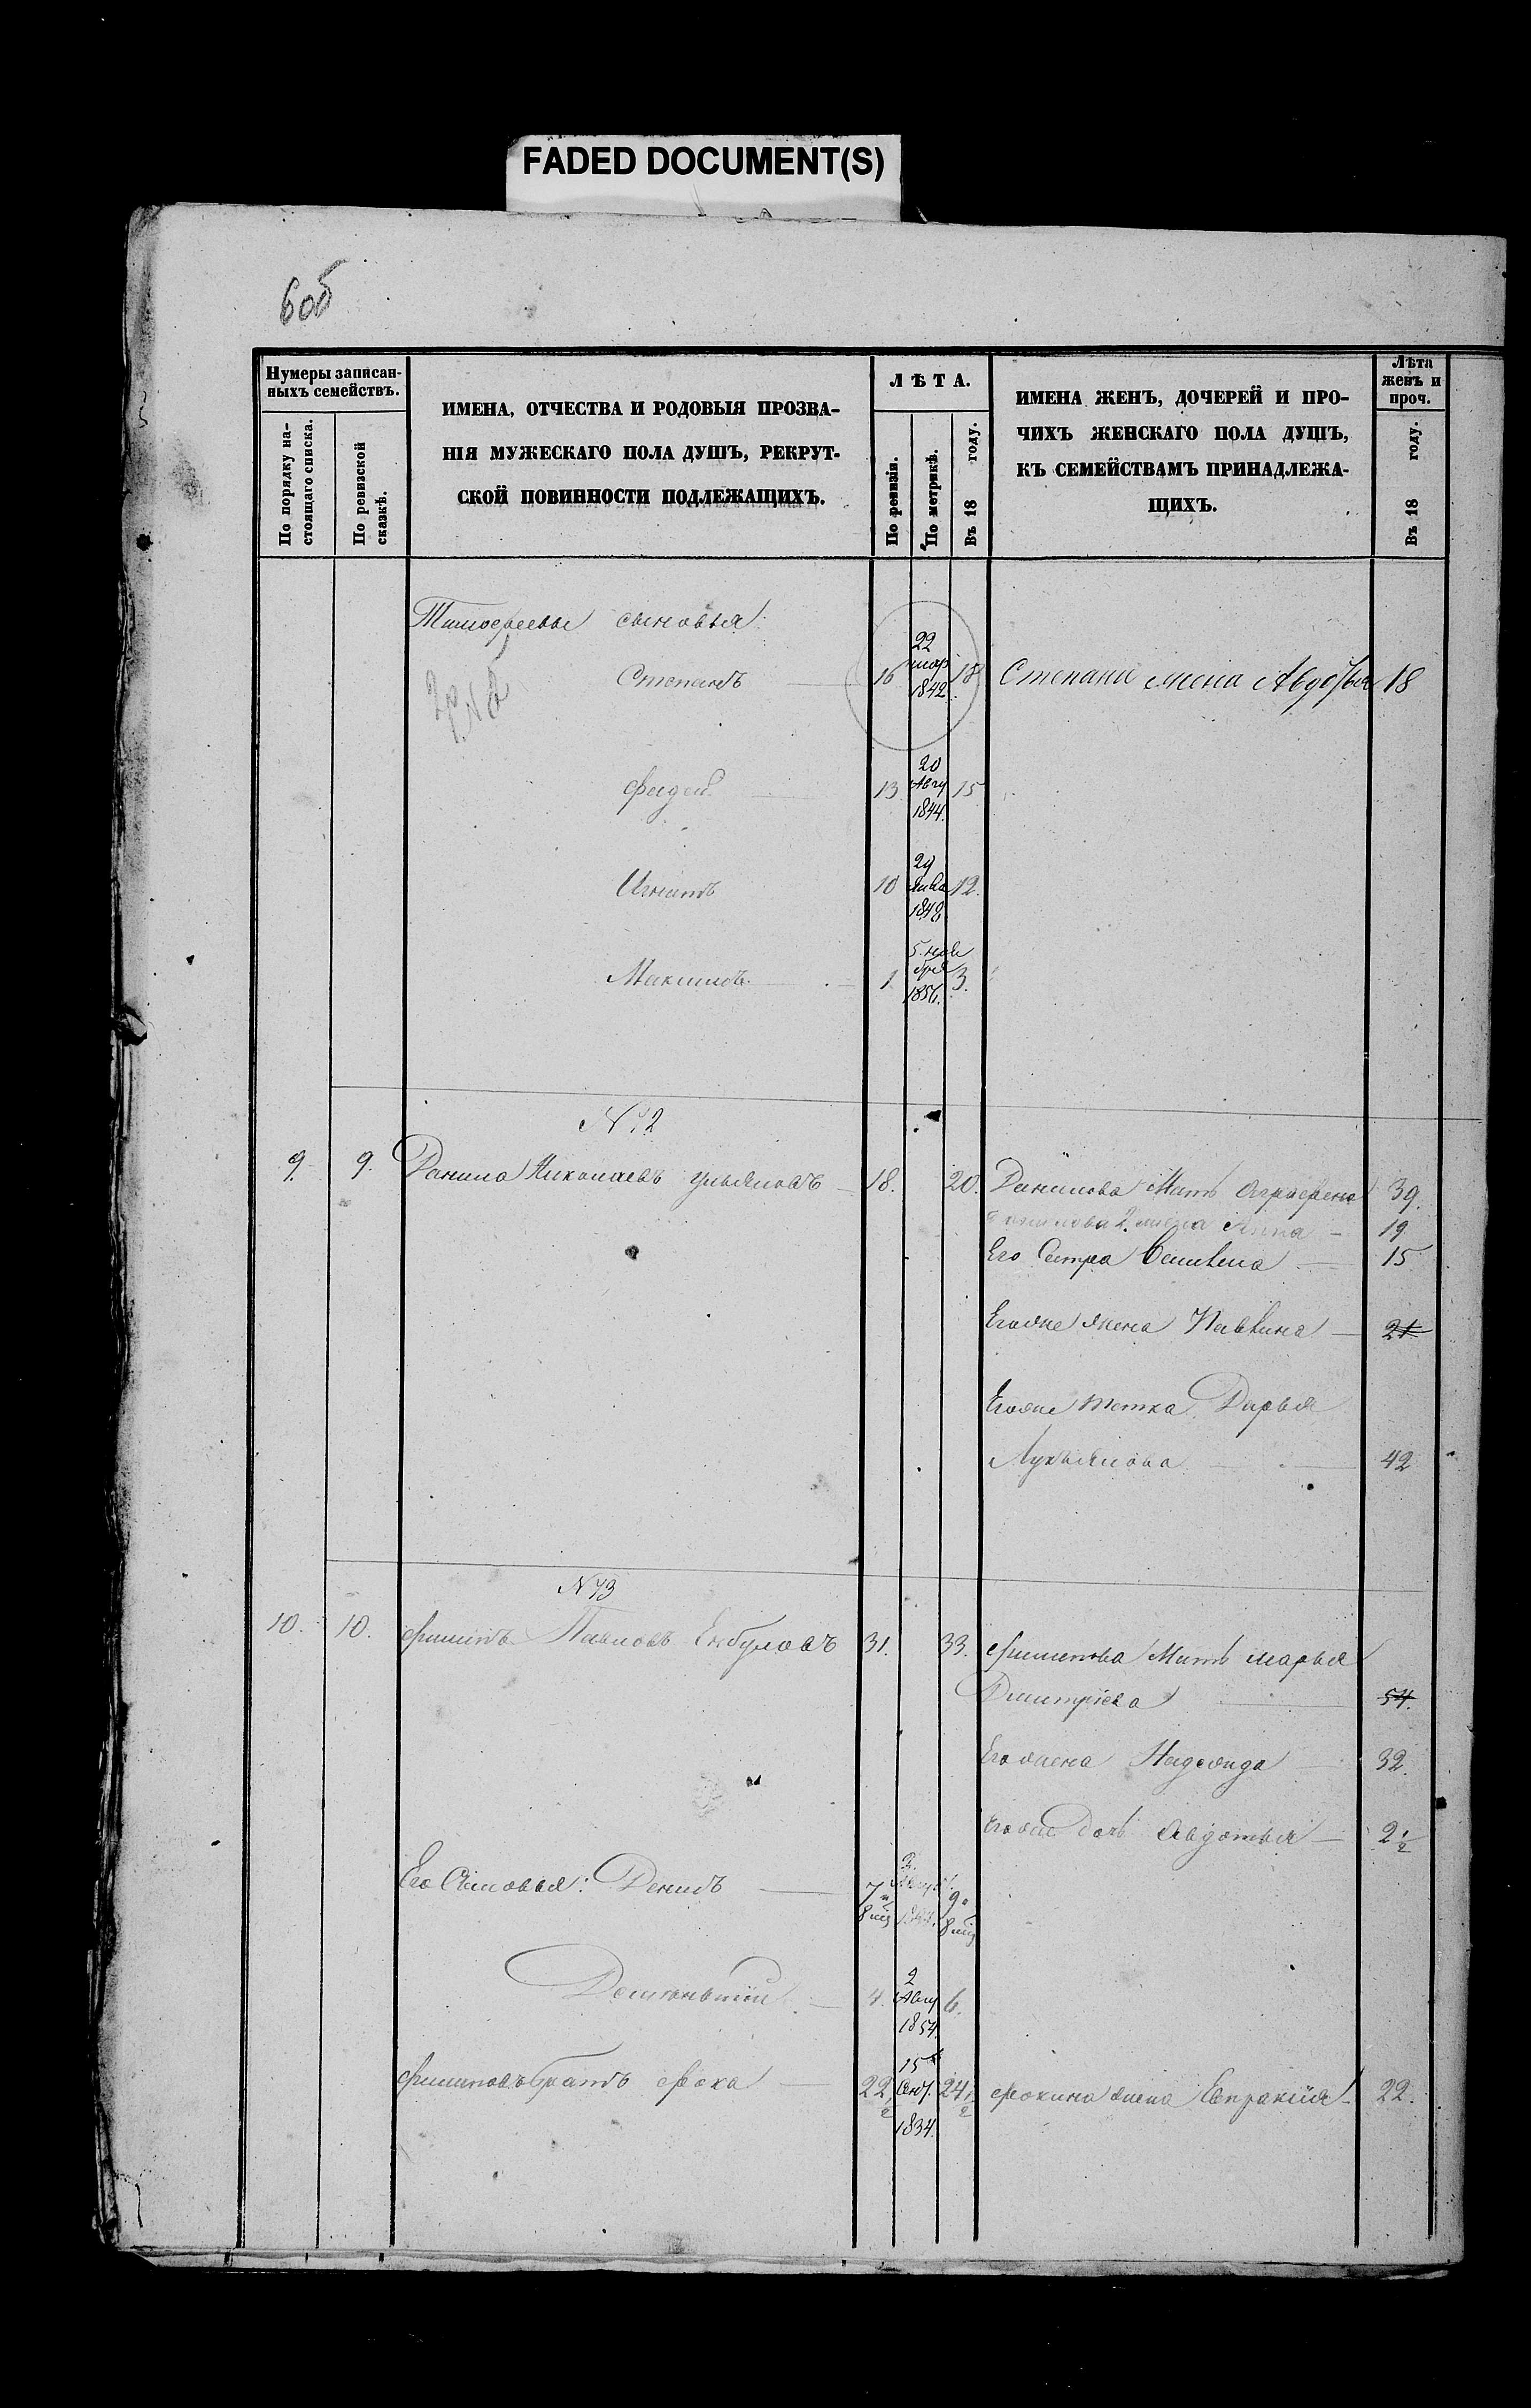 FADED DOCUMENT(S)
6об
Нумеры записан-
ныхъ семействъ.
По порядку на-
стоящаго списка.
По ревизской
сказкѣ.
ИМЕНА, ОТЧЕСТВА И РОДОВЫЯ ПРОЗВА-
НІЯ МУЖЕСКАГО ПОЛА ДУШЪ, РЕКРУТ-
СКОЙ ПОВИННОСТИ ПОДЛЕЖАЩИХЪ.
ЛѢТА.
По ревизіи.
По метрикѣ.
Въ 18 году.
ИМЕНА ЖЕНЪ, ДОЧЕРЕЙ И ПРО-
ЧИХЪ ЖЕНСКАГО ПОЛА ДУШЪ,
КЪ СЕМЕЙСТВАМЪ ПРИНАДЛЕЖА-
ЩИХЪ.
Лѣта
женъ и
проч.
Въ 18 году.
Тимофеевы сыновья:
Степанъ 16 22 мар 1842 18 Степани жена Авдотья 18
Фадей 13 20 Авгу 1844. 15
Игнатъ 10 29 Янва 1848 12.
Максимъ 1 5. ноя бря 1856. 3.
№ 42
9. 9. Данило Николаевъ Ульяновъ 18. 20. Данилова Мать Аграфена 39.
Данилова 2. жена Анна 19
Его Сестра 15
Егоже жена 21
Егоже тетка Дарья
Лукьянова 42
№ 43
10. 10. Филипъ Павловъ 31. 33. Филипова Мать Марья
Дмитріева 54.
Его жена Надежда 32.
Егоже дочь Авдотья 2 1/2
Его Сыновья: Денисъ 7 8 мѣ 3. 9 8 мѣ
4. 2 Авгу 1854. 6.
Филиповъ братъ Фока 22 1/2 15 Сент. 1834. 24 1/2 Фокина жена Евпраксія 22.